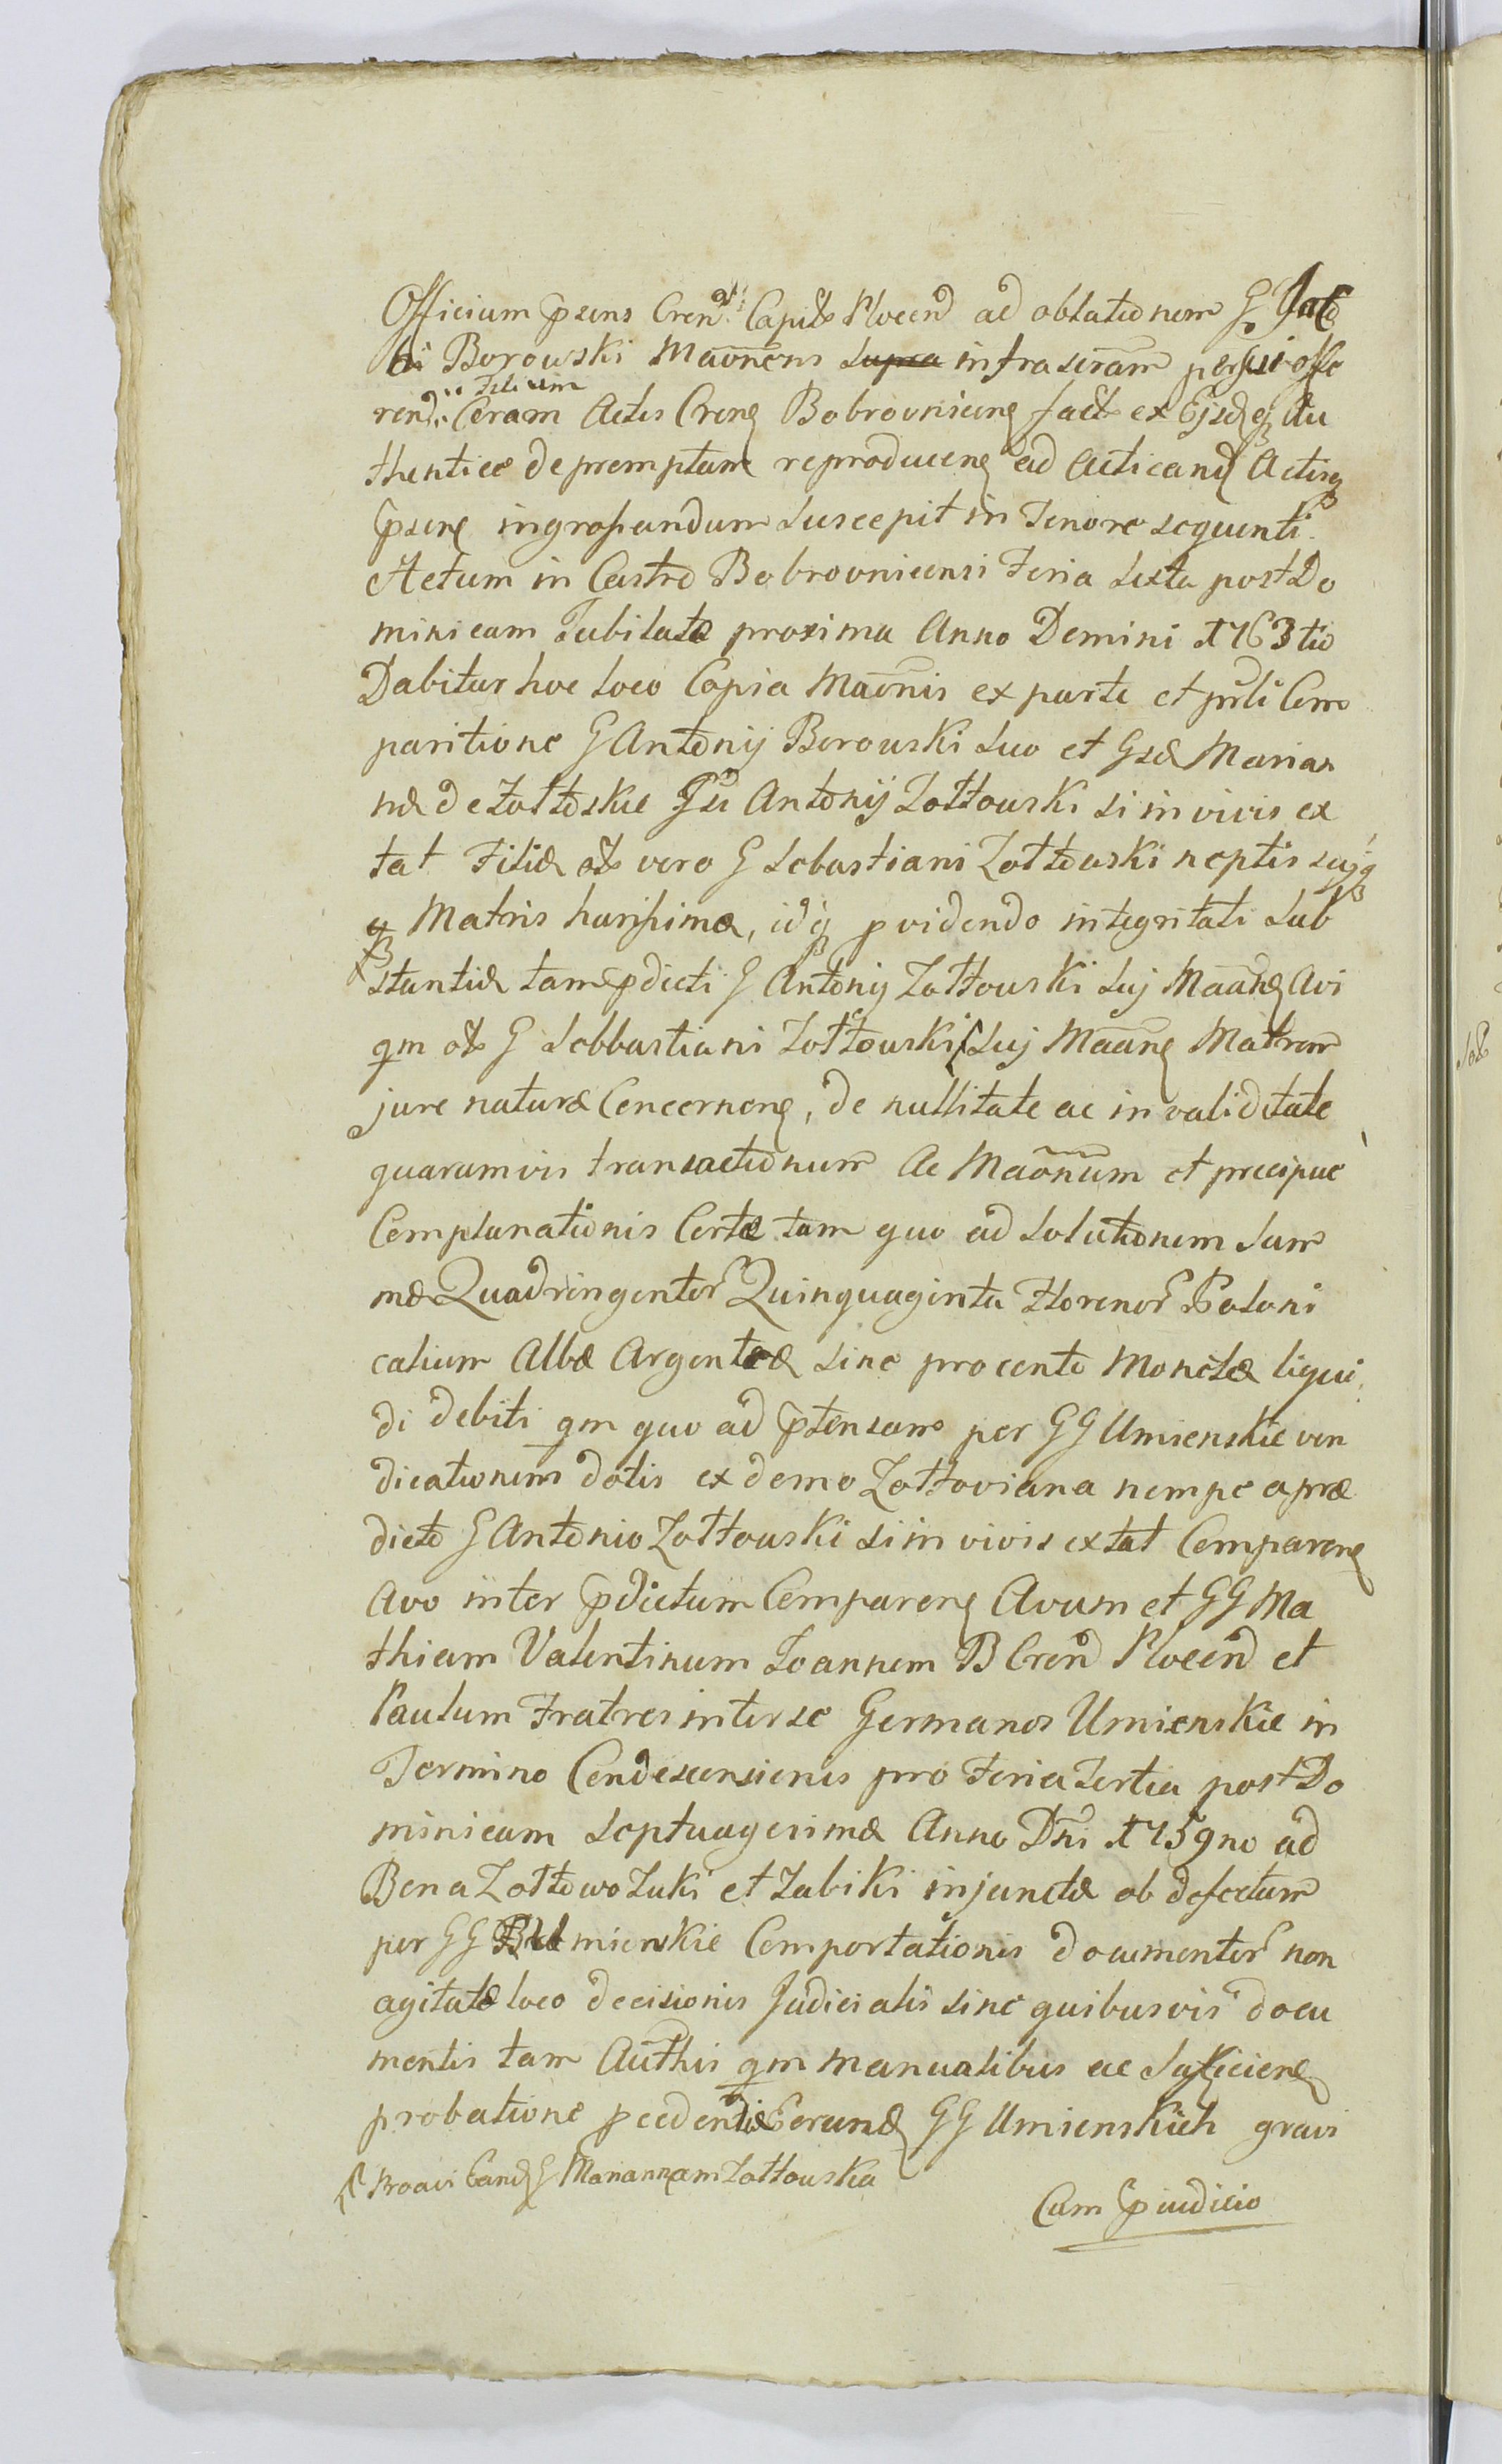 Officium ꝑsens Cren͠ Capitlis Plocen͠ ad oblationem G. Jaco
bi Borowski Mãonẽns supra infrascram per sui offe
rend. Ceram Filium Actis Crens Bobrovnicens fact ex Ejsdq Au
thentice depromptam reproducens ad Acticand Actisq
ꝑsens ingrossandum Suscepit in Tenore sequenti.
Actum in Castro Bobrovnicensi Feria Sexta post Do
minicam Jubilate proxima Anno Domini 1763tio
Dabitur hoc loco Copia Mãonis ex parte et psti Com
paritione G Antonij Borowski suo et Gsæ Marian
næ de Zołtoskie Gsi Antonij Zołtowski si in vivis ex
tat Filiæ olt vero G Sebastiani Zołtowski neptis sujq
q Matris harissimæ, idq ꝓvidendo integritati Sub
stantiæ tam ꝑdicti G Antonij Zołtowski Suj Mãans Avi
qm olt G Sebbastiani Zołtowski Suj Mãans Matrem
jure naturæ Concernens, de nullitate ac invaliditate
quarumvis transactionum ac Mãonum et precipue
Complanationis Certæ tam quo ad Solutionem Sum
mæ Quadringentor Quinquaginta Florenor Poloni
calium Albæ Argenteæ sine procento Monetæ liqui
di debiti qm quo ad ꝑtensam per GG Umienskie ven
dicationem dotis ex domo Zołtoviana nempe a præ
dicto G Antonio Zołtowski si in vivis extat Comparens
Avo inter ꝑdictum Comparens Avum et GG Ma
thiam Valentinum Joannem B Cren͠ Plocen͠ et
Paulum Fratres inter se Germanos Umienskie in
Termino Condescensionis pro Feria Tertia post Do
minicam Septuagesimæ Anno Dni 1759no ad
Bona Zołtowo Zuki et Zabiki injunctæ ob defectum
per GG Umienskie Comportationis documentor non
agitatæ loco decisionis Judicialis sine quibusvis docu
mentis tam Authis qm manualibus ac Sufficiens
probatione ꝓcedentiæ Eorund GG Umienskich gravi
Proavi Eand G Mariannam Zołtowska
Cum ꝑiudicio